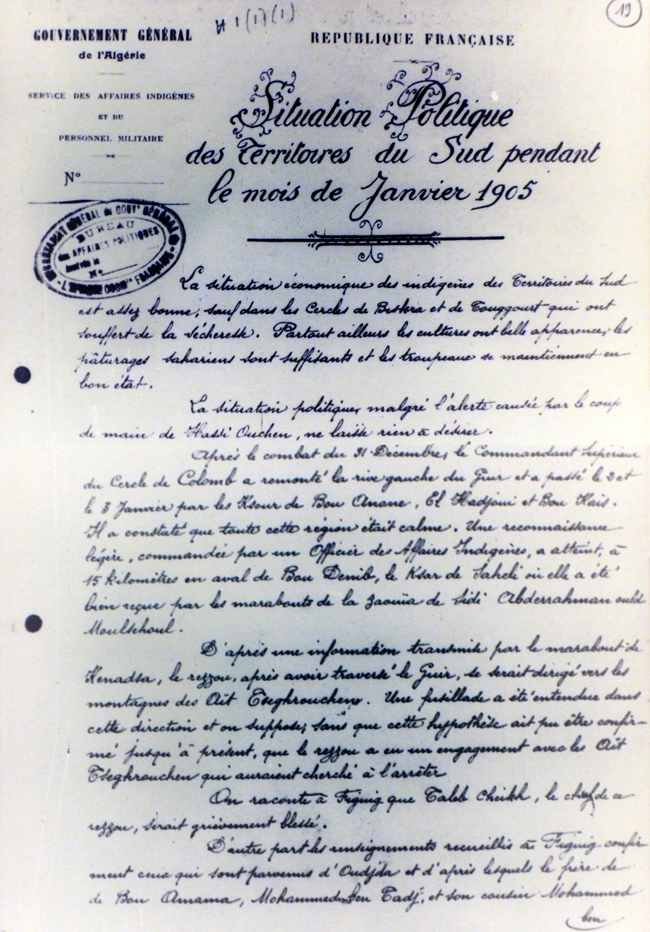 19
H 1(1)(1)
GOUVERNEMENT GÉNÉRAL
de l'Algérie
SERVICE DES AFFAIRES INDIGÈNES
ET DU
PERSONNEL MILITAIRE
N°
REPUBLIQUE FRANÇAISE
Situation Politique
des Territoires du Sud pendant
le mois de Janvier 1905
BUREAU
des AFFAIRES POLITIQUES
N°
La situation économique des indigènes des Territoires du Sud
est assez bonne, sauf dans les Cercles de Biskra et de Touggourt qui ont
souffert de la sécheresse. Partout ailleurs les cultures ont belle apparence, les
pâturages sahariens sont suffisants et les troupeaux se maintiennent en
bon état.
La situation politique, malgré l'alerte causée par le coup
de main de Hassi Ouchen, ne laisse rien à désirer.
Après le combat du 31 Décembre, le Commandant Supérieur
du Cercle de Colomb a remonté la rive gauche du Guir et a passé le 2 et
le 3 Janvier par les Ksour de Bou Anane, El Hadjoui et Bou Kais.
Il a constaté que toute cette région était calme. Une reconnaissance
légère, commandée par un Officier des Affaires Indigènes, a atteint, à
15 kilomètres en aval de Bou Denib, le Ksar de Saheli où elle a été
bien reçue par les marabouts de la Zaouïa de Sidi Abderrahman ould
Moulschoul.
D'après une information transmise par le marabout de
Kenadsa, le rezzou, après avoir traversé le Guir, se serait dirigé vers les
montagnes des Aït Tseghrouchens. Une fusillade a été entendue dans
cette direction et on suppose, sans que cette hypothèse ait pu être confir-
mé jusqu'à présent, que le rezzou a eu un engagement avec les Aït
Tseghrouchen qui auraient cherché à l'arrêter
On raconte à Figuig que Taleb Cheikh, le chef de ce
rezzou, serait grièvement blessé.
D'autre part les renseignements recueillis à Figuig confir-
ment ceux qui sont parvenus d'Oudjda et d'après lesquels le frère de
de Bou Amama, Mohammed ben Tadj, et son cousin Mohammed
ben